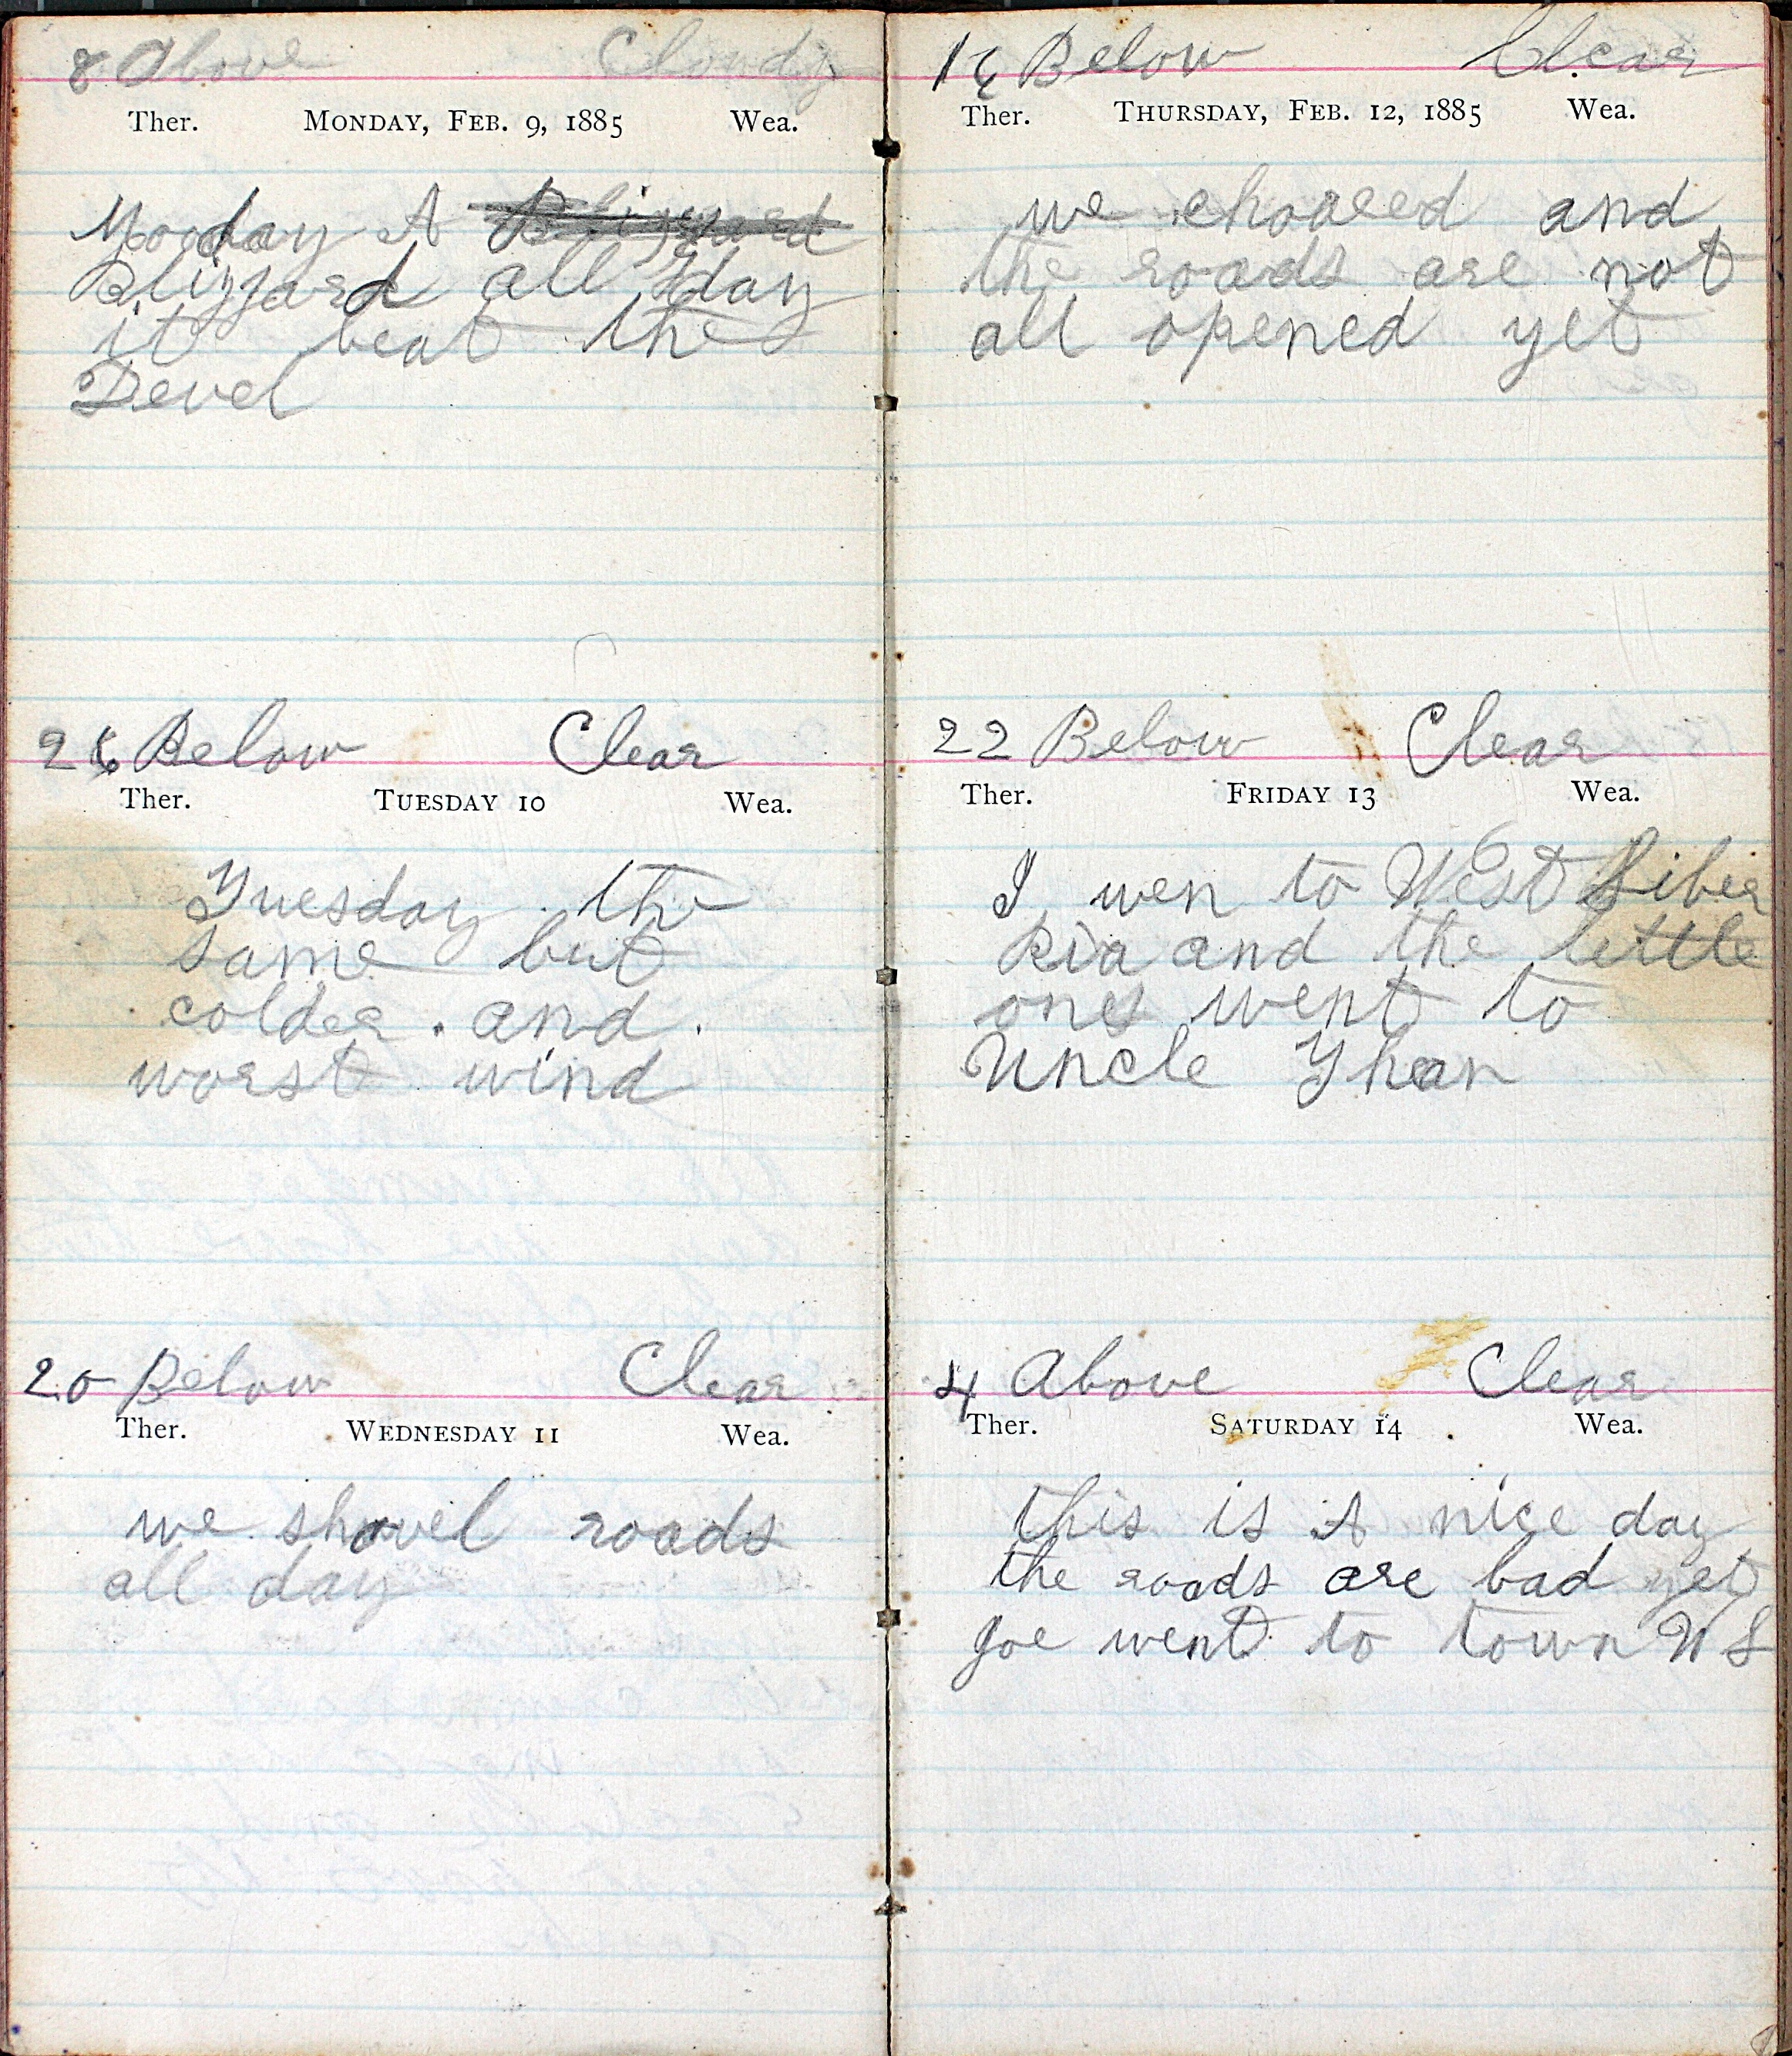 8 Above Cloudy
Ther. Monday, Feb. 9, 1885 Wea.
Mooday A Blizzard
Blizzard all day
it beat the
Devel
26 Below Clear
Ther. Tuesday 10 Wea.
Tuesday the
same but
colder. and.
worst wind
20 Below Clear
Ther. Wednesday 11 Wea.
we shovel roads
all day
16 Below Clear
Ther. Thursday, Feb. 12, 1885 Wea.
we and
the roads are not
all opened yet
22 Below Clear
Ther. Friday 13 Wea.
I wen to West Liber
Ria and the little
ones went to
Uncle
4 Above Clear
Ther. Saturday 14 Wea.
this is A nice day
the roads are bad yet
Joe went to town W L